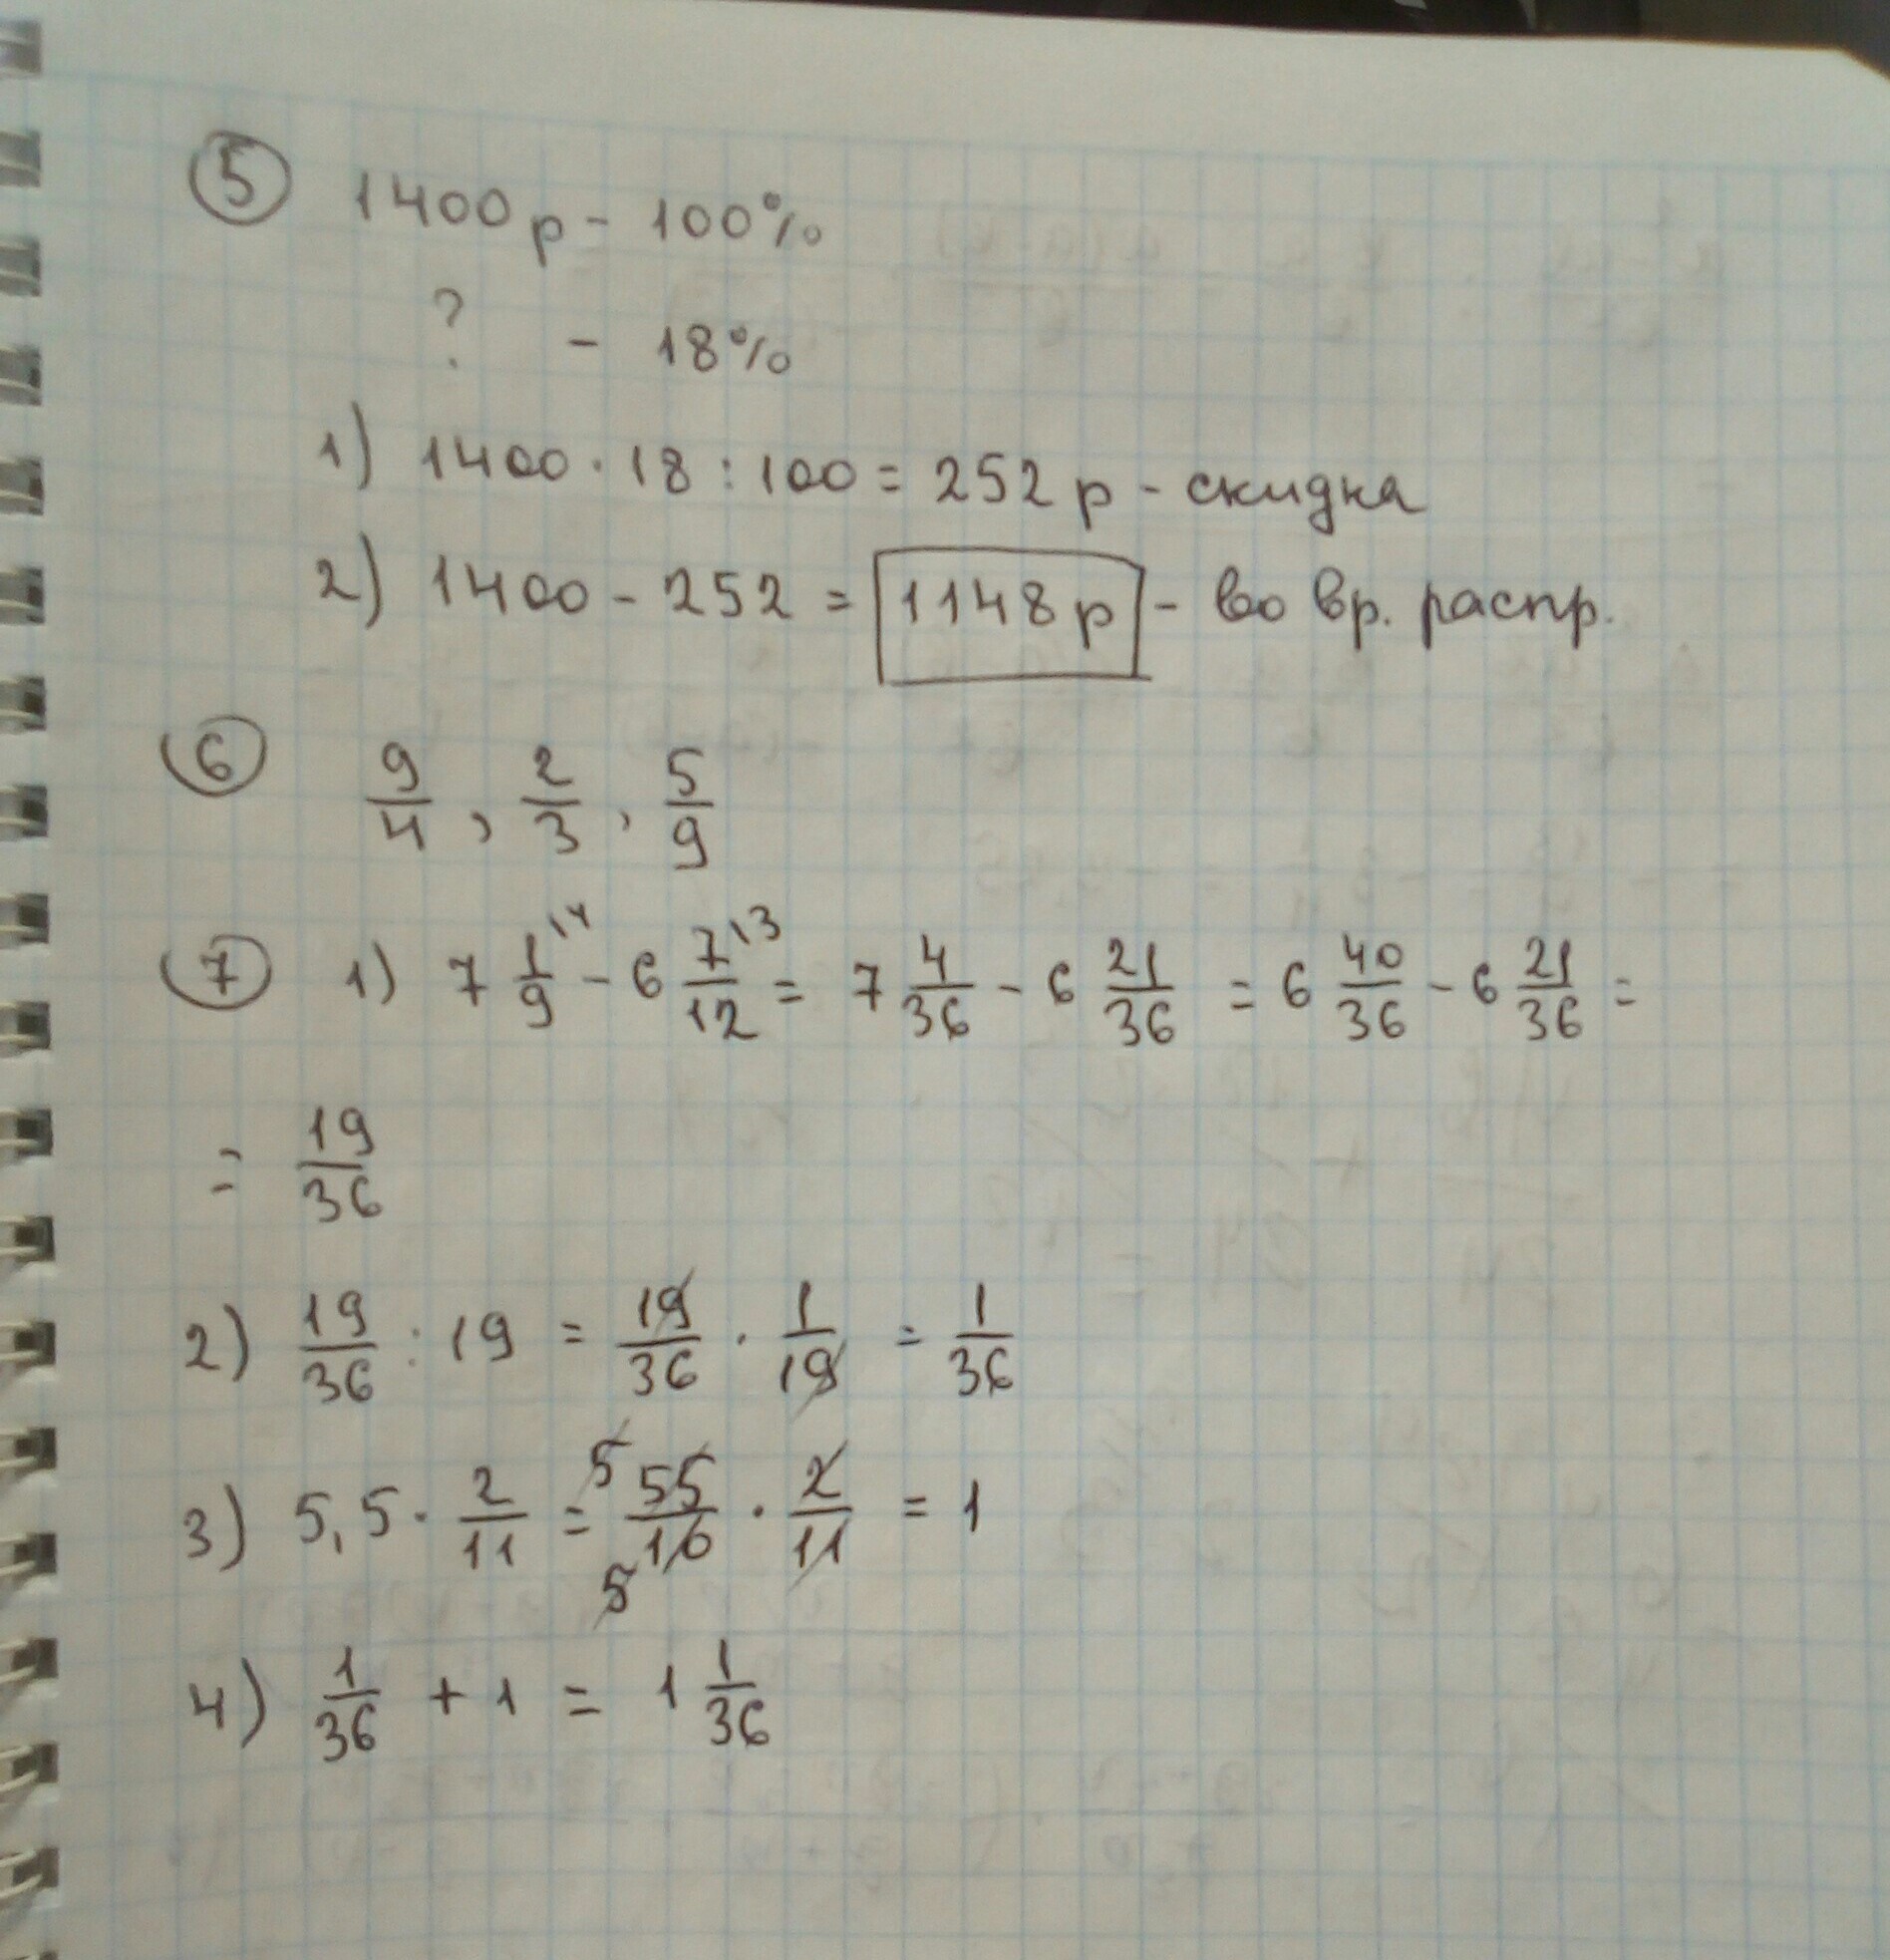 5 1400р - 100%
? - 18%
1) 1400 · 18 : 100 = 252 р - скидка
2) 1400 - 252 = 1148 р - во вр. распр.
6 9/4, 2/3, 5/9
7 1) 7 1/9 \4 - 6 7/12 \3 = 7 4/36 - 6 21/36 = 6 40/36 - 6 21/36 =
= 19/36
2) 19/36 : 19 = 19/36 · 1/19 = 1/36
3) 5,5 · 2/11 = 5 55/10 5 · 2/11 = 1
4) 1/36 + 1 = 1 1/36